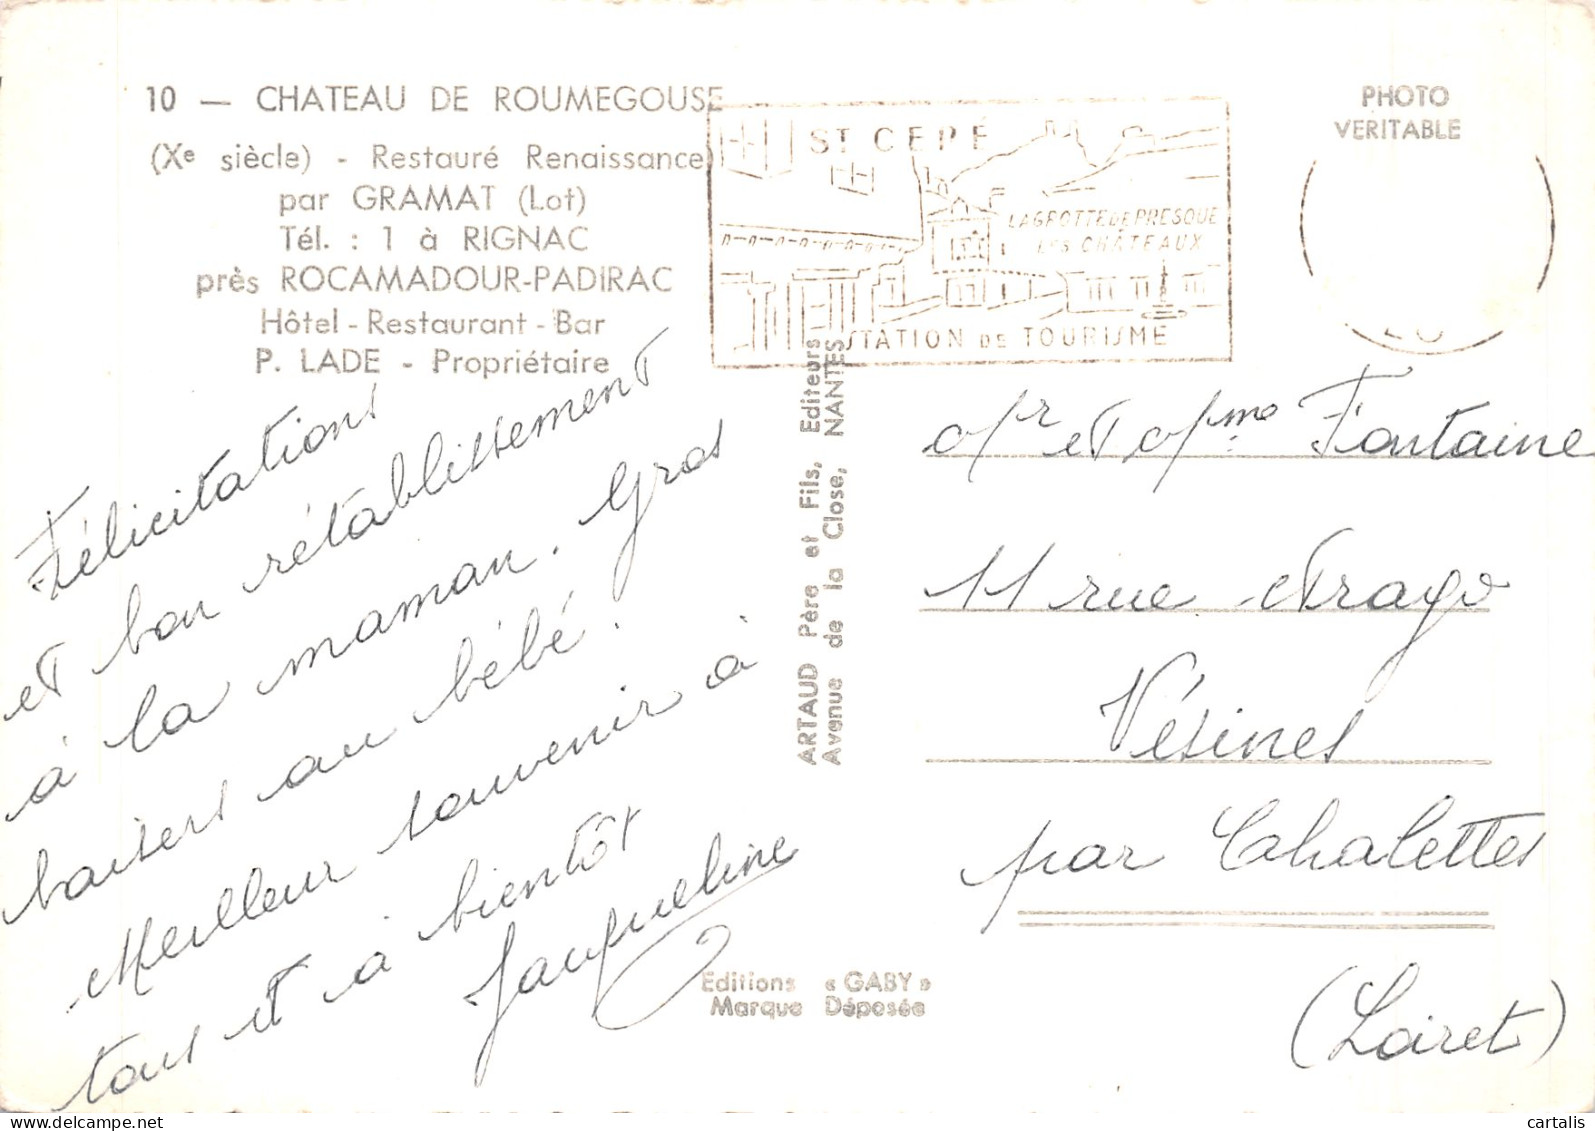 10 — CHATEAU DE ROUMEGOUSE
(Xe siècle) - Restauré Renaissance
par GRAMAT (Lot)
Tél. : 1 à RIGNAC
près ROCAMADOUR-PADIRAC
Hôtel - Restaurant - Bar
P. LADE - Propriétaire
ST CERÉ
LA GROTTE DE PRESQUE
LES CHÂTEAUX
STATION DE TOURISME
PHOTO
VERITABLE
Félicitations
et bon rétablissement
à la maman. Gros
baisers au bébé.
Meilleur souvenir à
tous et à bientôt
Jacqueline
ARTAUD Père et Fils, Editeurs
Avenue de la Close, NANTES
Mr et Mme Fontaine
11 rue Arago
Vésines
par Chalettes
(Loiret)
Editions « GABY »
Marque Déposée
cartalis
delcampe.net